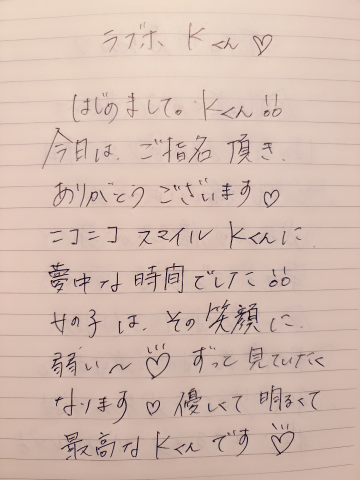 ラブホ Kくん♡
はじめまして。Kくん!!
今日は、ご指名頂き、
ありがとうございます♡
ニコニコ スマイル Kくんに
夢中な時間でした!!
女の子は、その笑顔に
弱い〜♡ ずっと見ていたく
なります♡ 優しくて 明るくて
最高な Kくんです♡